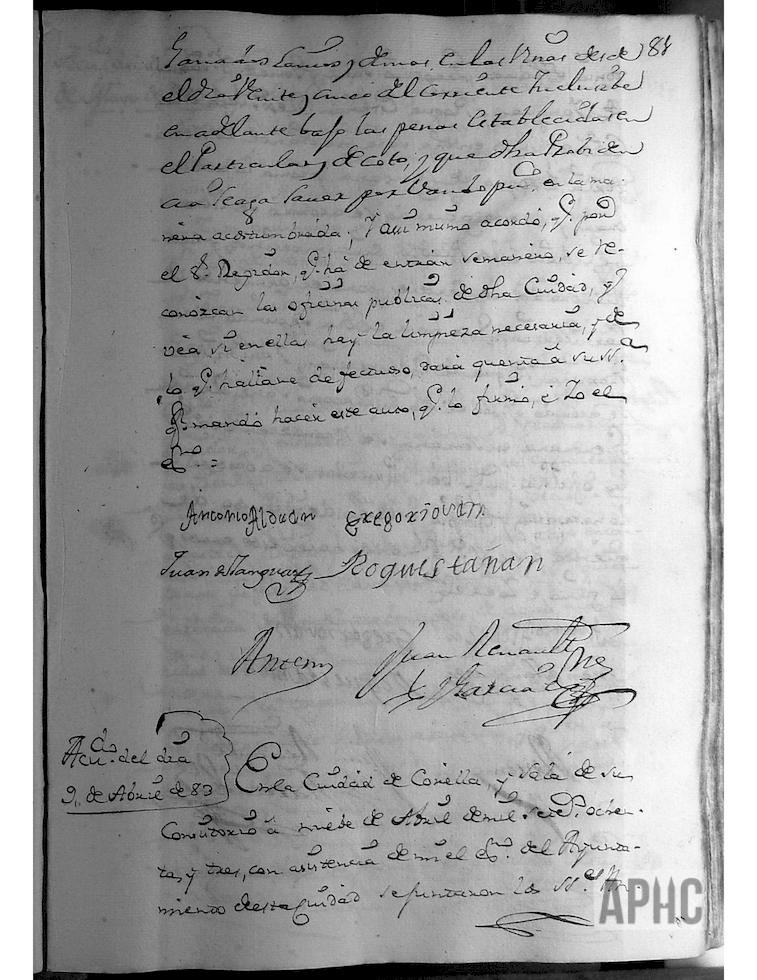 Ganados Lanios y demas, en las Viñas desde 84
el dia Veinte y cinco del Corriente Inclusibe
en adelante bajo las penas establecidas en
el Particular, y de coto, y que dha Prohiben
cia se aga Saver por Vando pu.co, en la ma-
nera acostumbrada; Y asi mismo acordó, q.e por
el S.r Regidor, q.e há de entrar semanero, se re-
conozcan las oficinas publicas de dha Ciudad, y
vea si en ellas hay la limpieza necesaria, y de
lo q.e hallare defectuoso, dará quenta á su S.a
q.e mandó hacer este auto, q.e lo firmó, é Yo el
ess.no =
Antonio Alduan Gregorio Ivan
Juan de Sanguas Roque Stañan
Antemi Juan Renault
y Garcia
Acu.do del dia
9, de Abril de 83
En la Ciudad de Corella, y Sala de su
Consistorio á nuebe de Abril de mil Setez.s ochen-
ta, y tres, con asistencia de mi el ess.no del Ayunta-
miento de esta Ciudad se juntaron los SS.es An-
APHC